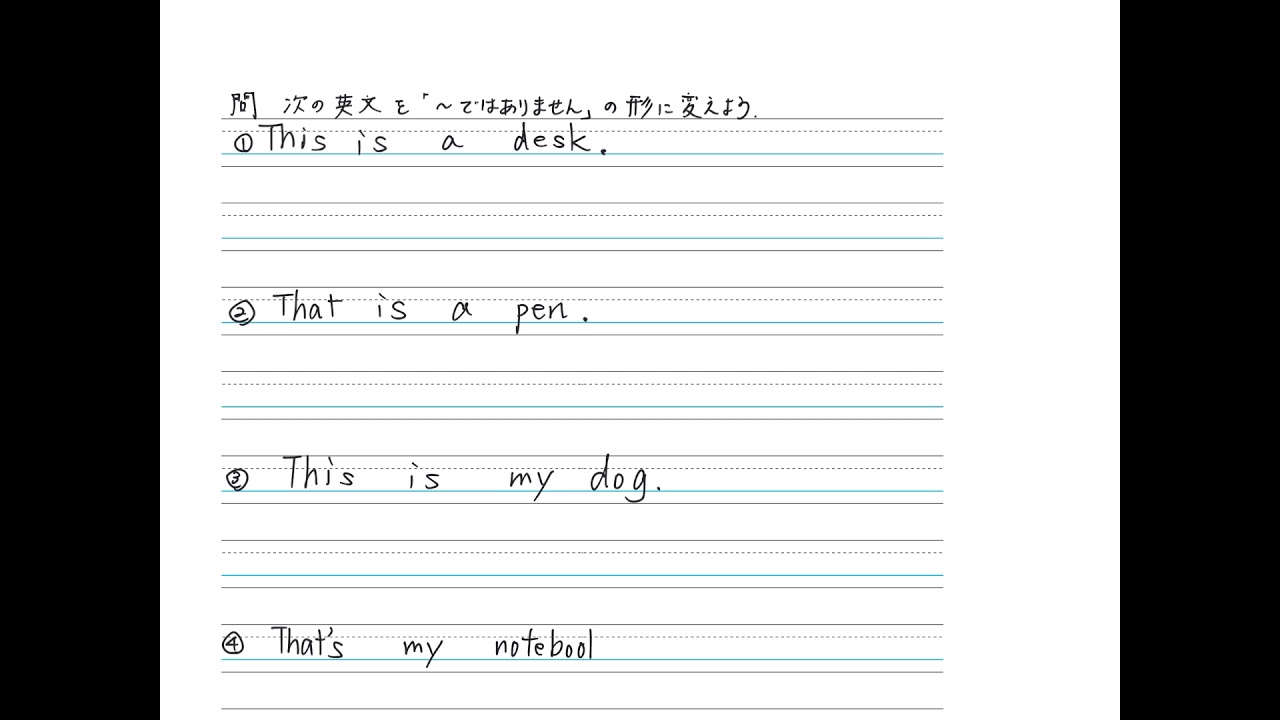 問 次の英文を「～ではありません」の形に変えよう.
① This is a desk.
② That is a pen.
③ This is my dog.
④ That's my notebool